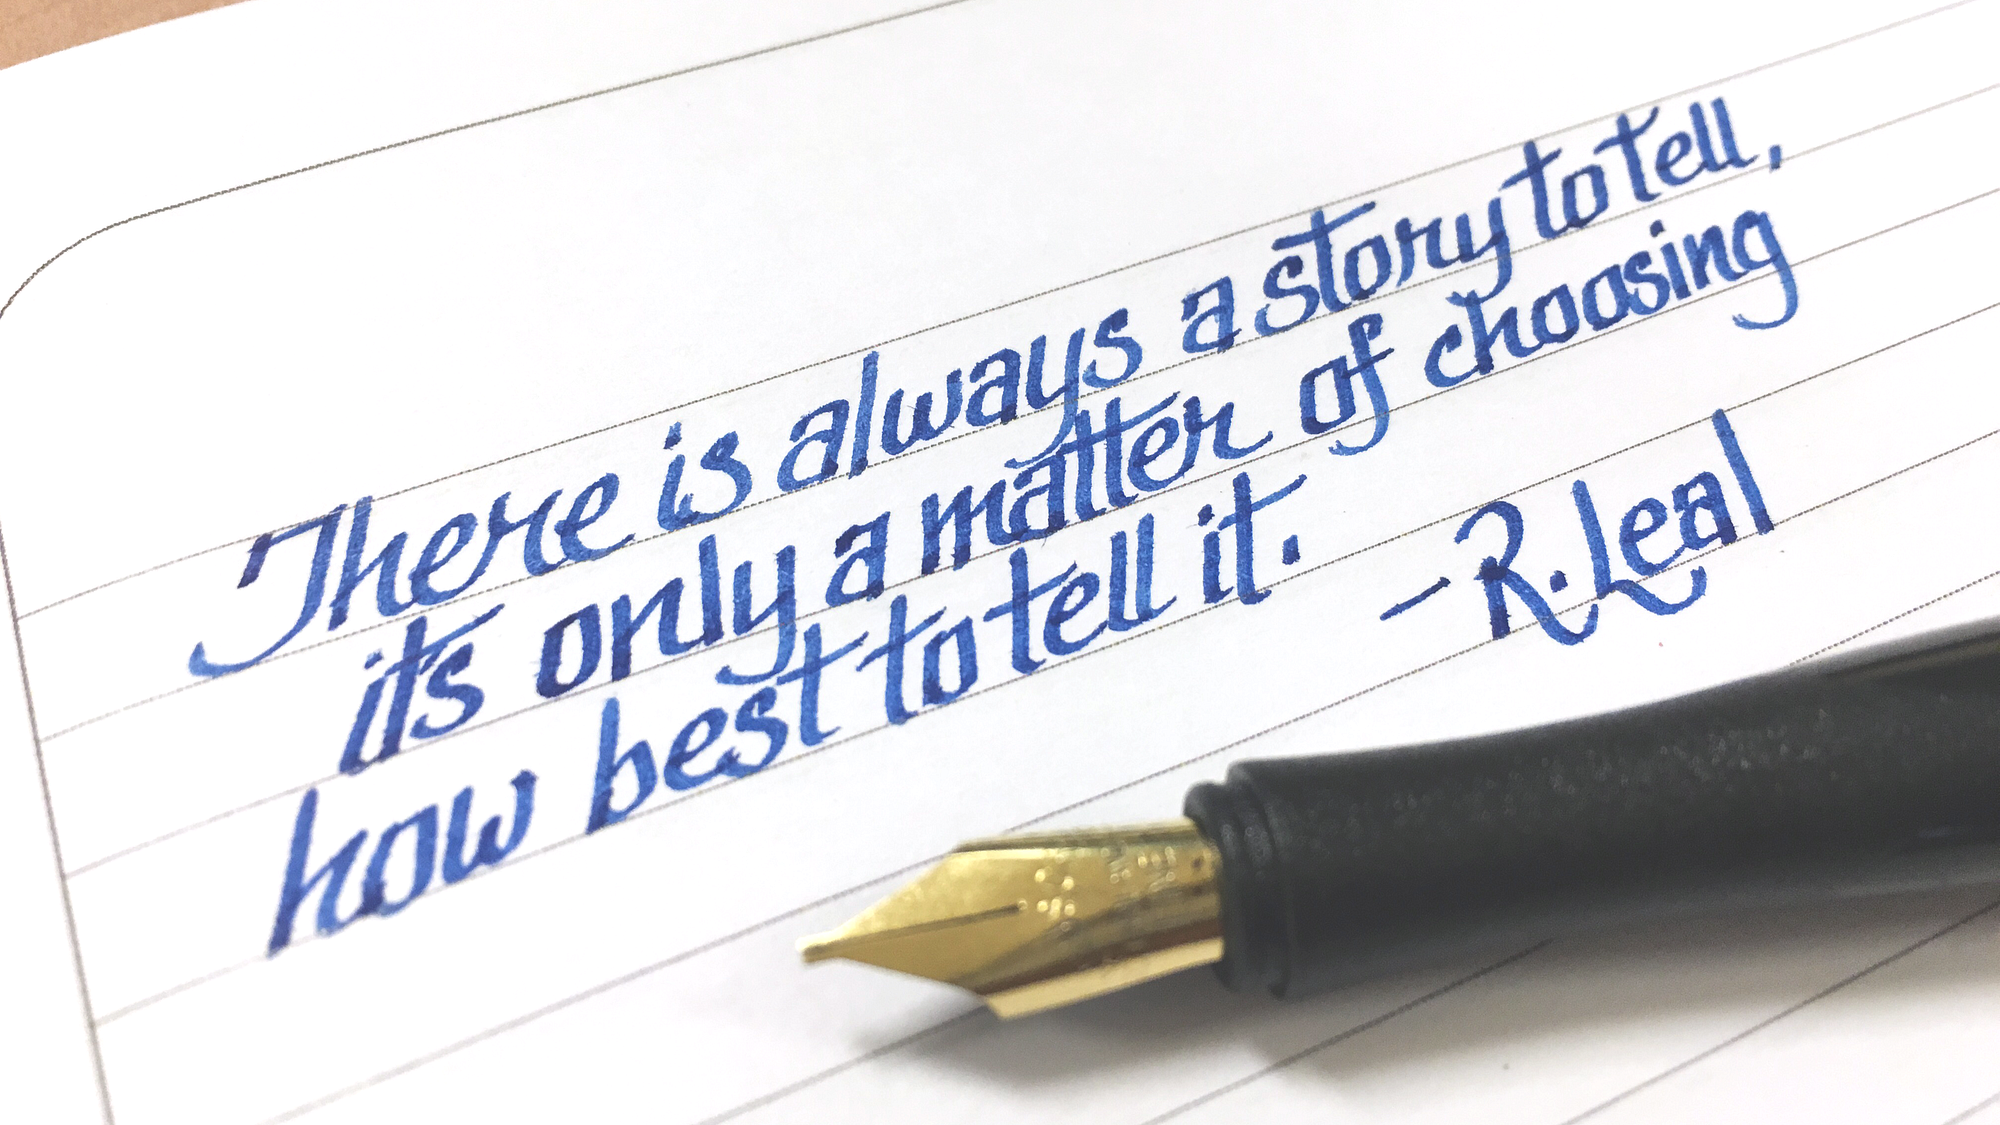 There is always a story to tell,
it's only a matter of choosing
how best to tell it.
- R. Leal